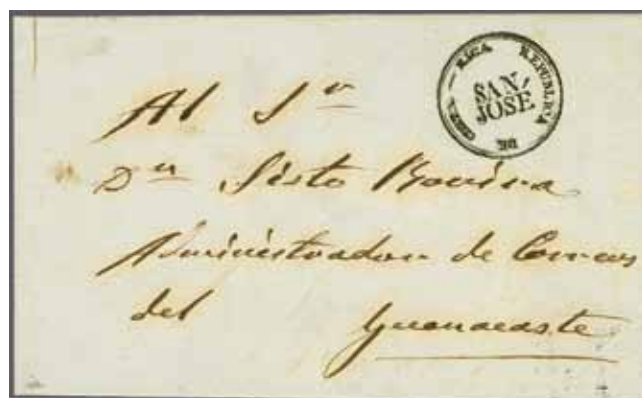 REPUBLICA DE COSTA-RICA
SAN JOSE
Al Sr
Dn Sisto
Administrador de Correos
del Guanacaste